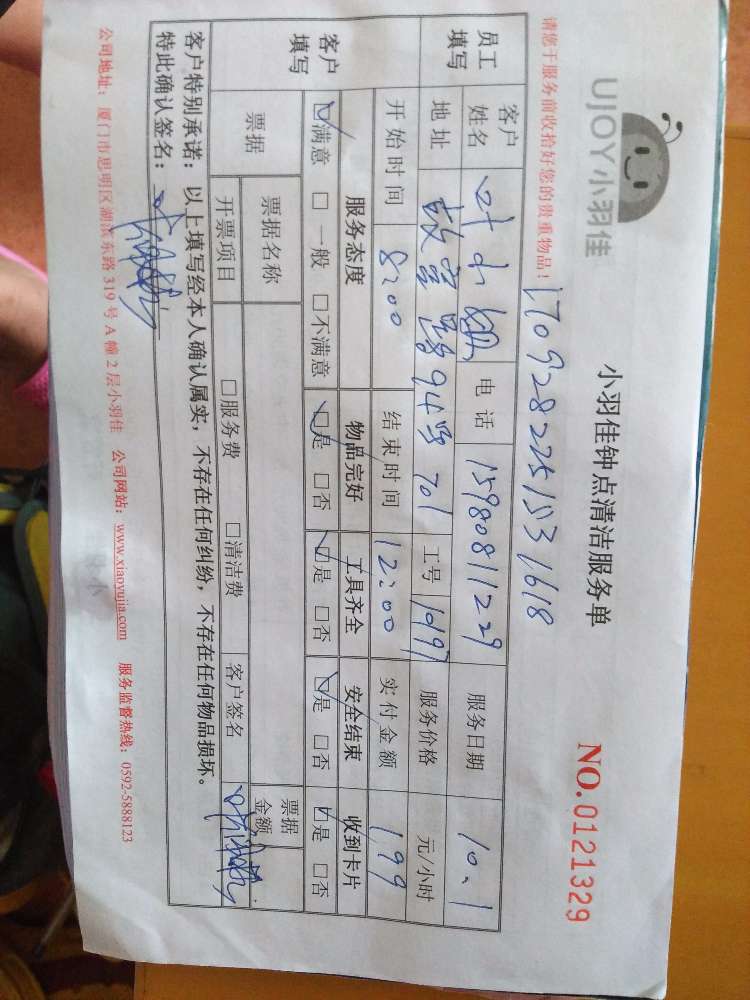 UJOY小羽佳
小羽佳钟点清洁服务单
NO.0121329
请您于服务前收拾好您的贵重物品！
员工填写 客户姓名 电话 15980811229 服务日期 10.1
地址 94号 701 工号 1097 服务价格 元/小时
客户填写 开始时间 8:00 结束时间 12:00 实付金额 199
服务态度 物品完好 工具齐全 安全结束 收到卡片
☑满意 □一般 □不满意 ☑是 □否 ☑是 □否 ☑是 □否 ☑是 □否
票据 票据名称 票据金额
开票项目 □服务费 □清洁费 客户签名
客户特别承诺：以上填写经本人确认属实，不存在任何纠纷，不存在任何物品损坏。
特此确认签名：
公司地址：厦门市思明区湖滨东路319号A幢2层小羽佳 公司网站：www.xiaoyujia.com 服务监督热线：0592-5888123